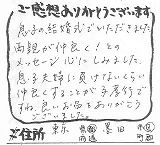 ご感想ありがとうございます
息子の結婚式でいただきました
両親が仲良く!との
メッセージ心にしみました。
息子夫婦に負けないくらい
仲良くすることが子孝行で
すね。良いお酒をありがとう
ございました。
ご住所 東京 都 墨田